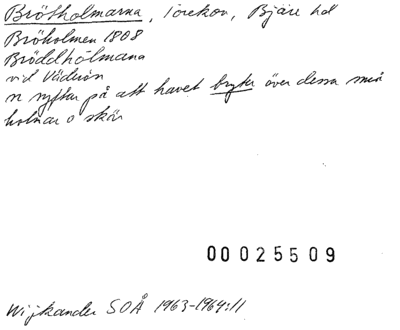 Brötholmarna, Torekov, Bjäre hd
Bröholmen 1808
Bröddhólmana
vid Väderön
n syftar på att havet bryter över dessa små
holmar o skär
00025509
Wijkander SOÅ 1963-1964:11